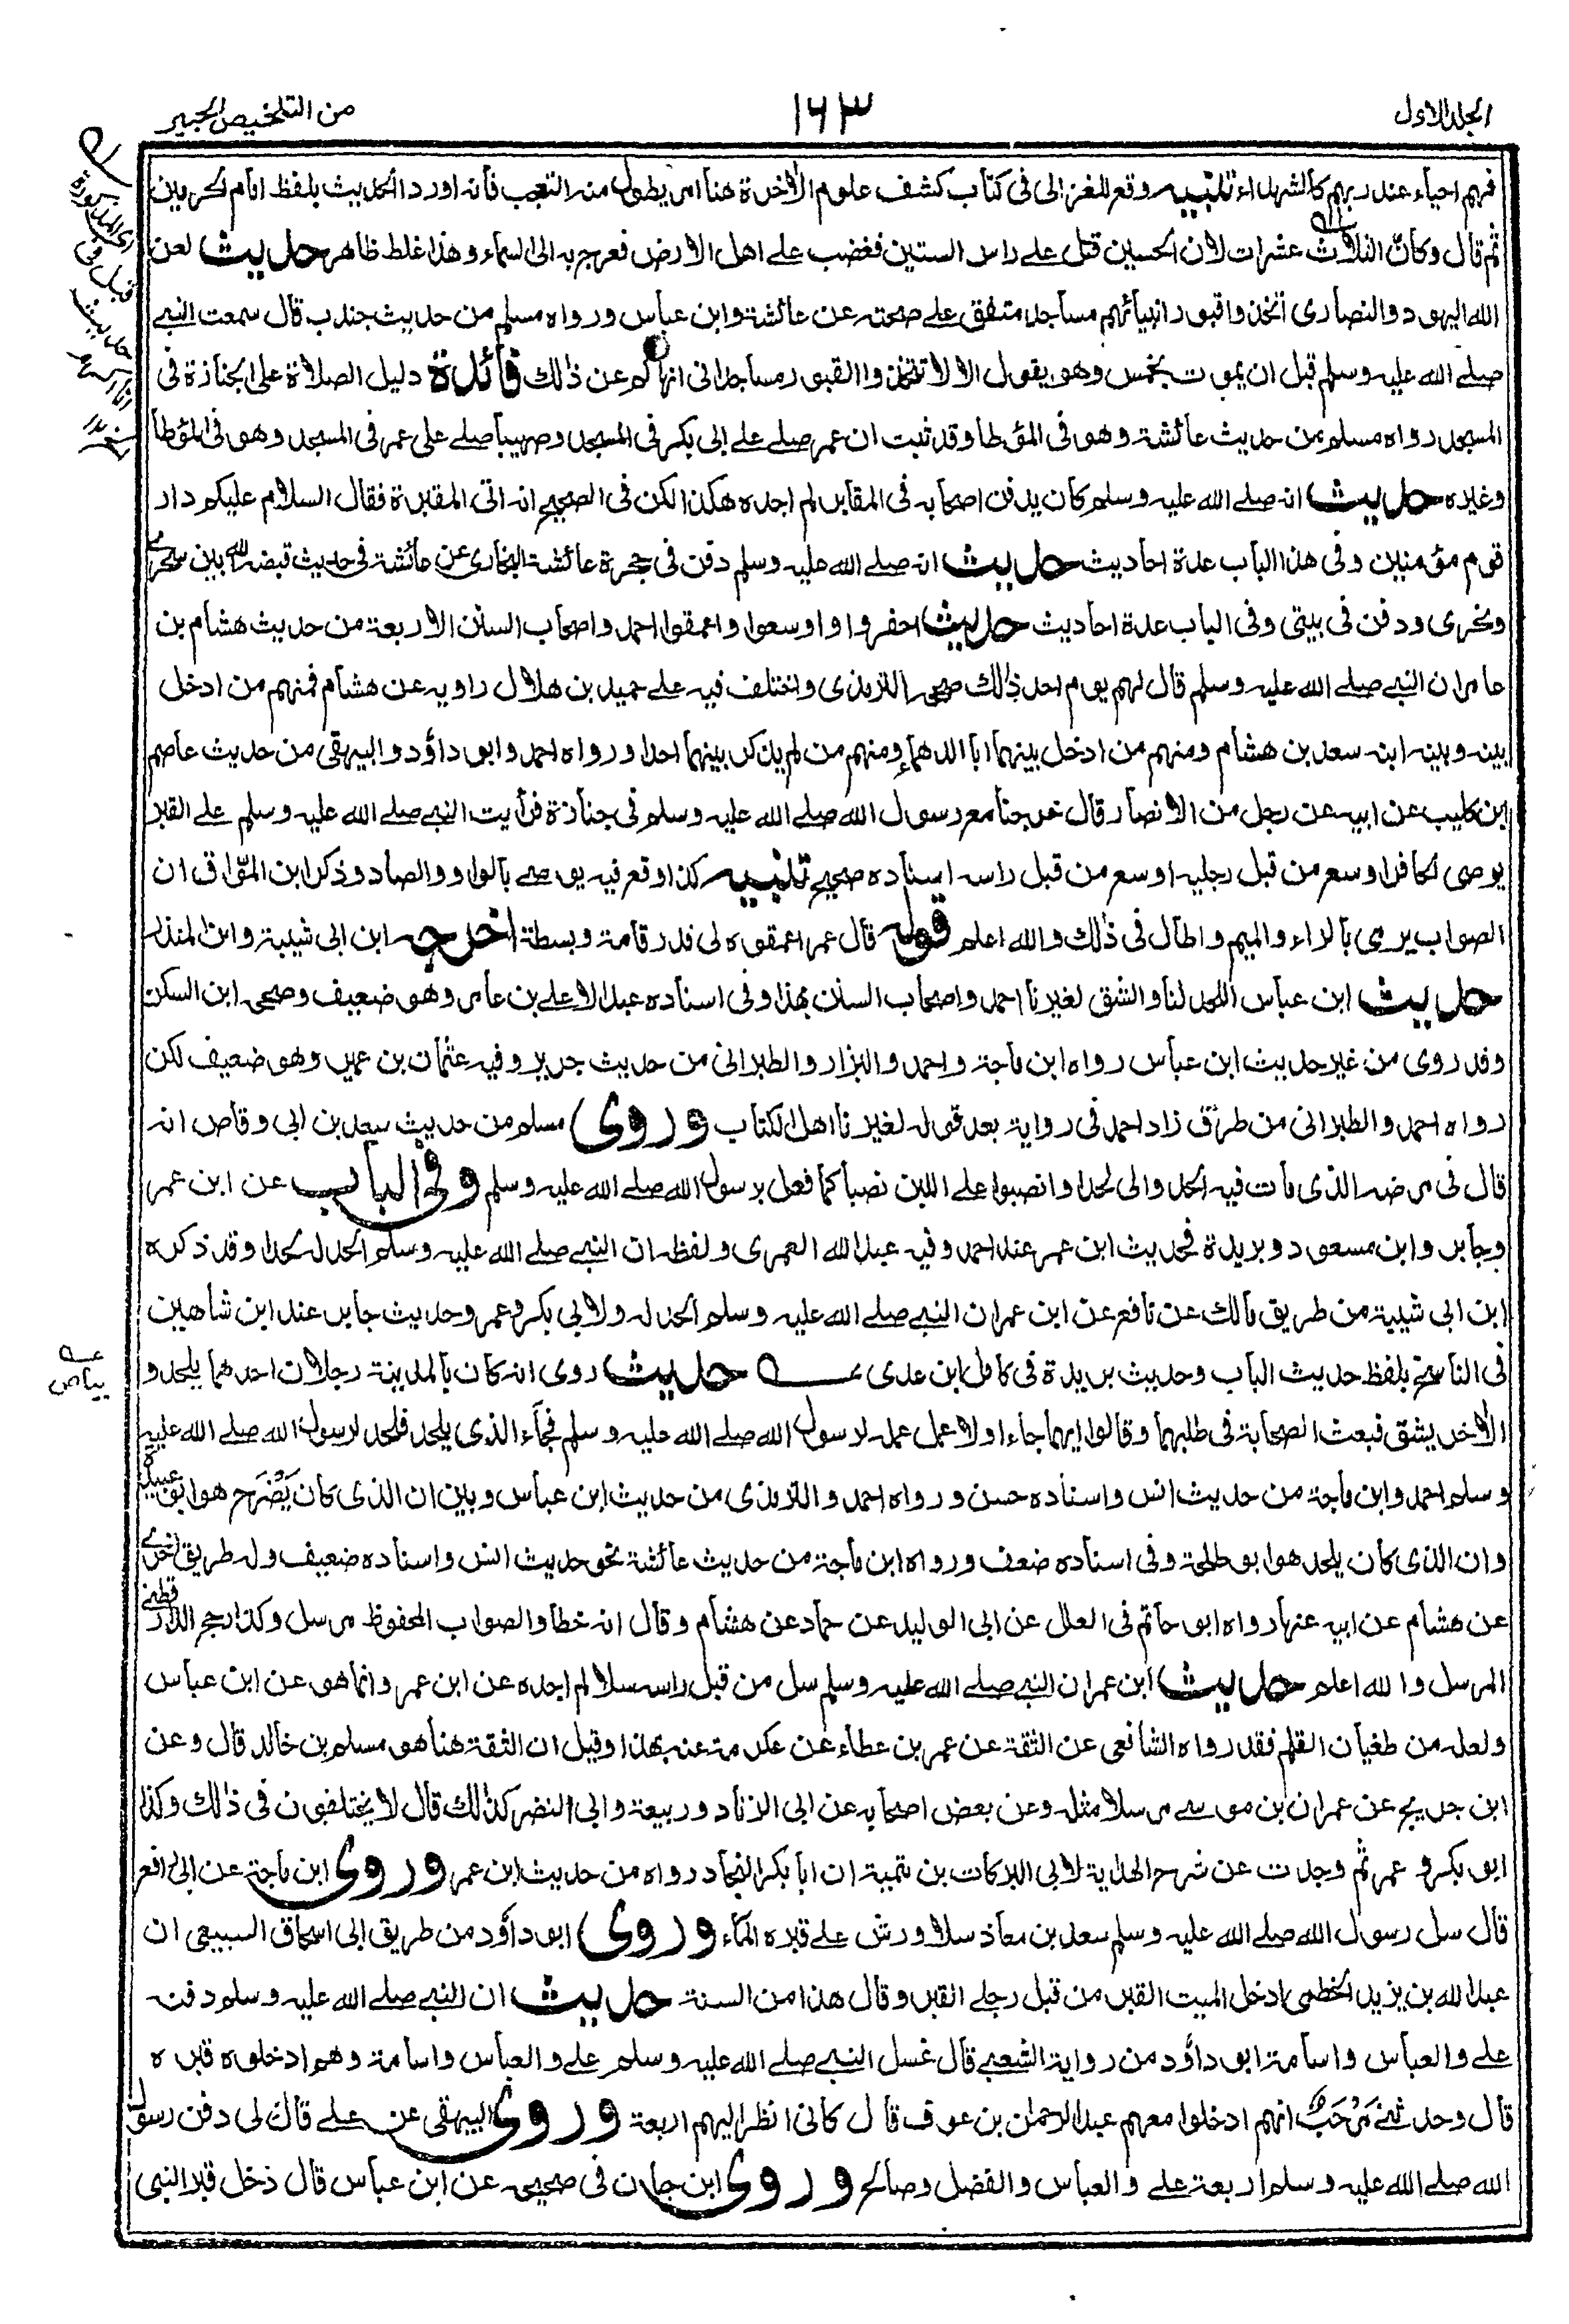 المجلد الاول
١٦٣
من التلخيص الحبير
فهم احياء عند ربهم كالشهداء تنبيه وقع للغزالى فى كتاب كشف علوم الاخرة هنا امر يطول منه التعجب فانه اورد الحديث بلفظ انا اكرم
ثم قال وكان الثلاث عشرات لان الحسين قتل على راس الستين فغضب على اهل الارض فعرج به الى السماء وهذا غلط ظاهر حديث لعن
الله اليهود والنصارى اتخذوا قبور انبيائهم مساجد متفق على صحته عن عائشة وابن عباس ورواه مسلم من حديث جندب قال سمعت النبى
صلى الله عليه وسلم قبل ان يموت بخمس وهو يقول الا لا تتخذوا القبور مساجد انى انهاكم عن ذالك فائدة دليل الصلاة على الجنازة فى
المسجد رواه مسلم من حديث عائشة وهو فى المؤطا وقد ثبت ان عمر صلى على ابى بكر فى المسجد وصهيبا صلى على عمر فى المسجد وهو فى المؤطا
وغيره حديث انه صلى الله عليه وسلم كان يدفن اصحابه فى المقابر لم اجده هكذا لكن فى الصحيح انه اتى المقبرة فقال السلام عليكم دار
قوم مؤمنين وفى هذا الباب عدة احاديث حديث انه صلى الله عليه وسلم دفن فى حجرة عائشة البخارى عن عائشة فى حديث قبضه الله بين سحرى
ونحرى ودفن فى بيتى وفى الباب عدة احاديث حديث احفروا واوسعوا واعمقوا احمد واصحاب السنن الاربعة من حديث هشام بن
عامر ان النبى صلى الله عليه وسلم قال لهم يوم احد ذالك صححه الترمذى واختلف فيه على حميد بن هلال راويه عن هشام فمنهم من ادخل
بينه وبينه ابنه سعد بن هشام ومنهم من ادخل بينهما ابا الدهماء ومنهم من لم يذكر بينهما احدا ورواه احمد وابو داؤد والبيهقى من حديث عاصم
ابن كليب عن ابيه عن رجل من الانصار قال خرجنا مع رسول الله صلى الله عليه وسلم فى جنازة فرأيت النبى صلى الله عليه وسلم على القبر
يوصى الحافر اوسع من قبل رجليه اوسع من قبل راسه اسناده صحيح تنبيه كذا وقع فيه يوصى بالواو والصاد وذكر ابن المواق ان
الصواب يرمى بالراء والميم واطال فى ذلك والله اعلم قوله قال عمر اعمقوه لى قدر قامة وبسطة اخرجه ابن ابى شيبة وابن المنذر
حديث ابن عباس اللحد لنا والشق لغيرنا احمد واصحاب السنن بهذا وفى اسناده عبد الاعلى بن عامر وهو ضعيف وصححه ابن السكن
وقد روى من غير حديث ابن عباس رواه ابن ماجة واحمد والبزار والطبرانى من حديث جرير وفيه عثمان بن عمير وهو ضعيف لكن
رواه احمد والطبرانى من طرق زاد احمد فى رواية بعد قوله لغيرنا اهل الكتاب وروى مسلم من حديث سعد بن ابى وقاص انه
قال فى مرضه الذى مات فيه الحدوا لى لحدا وانصبوا على اللبن نصبا كما فعل برسول الله صلى الله عليه وسلم وفى الباب عن ابن عمر
وجابر وابن مسعود وبريدة فحديث ابن عمر عند احمد وفيه عبد الله العمرى ولفظه ان النبى صلى الله عليه وسلم الحد له لحدا وقد ذكره
ابن ابى شيبة من طريق مالك عن نافع عن ابن عمر ان النبى صلى الله عليه وسلم الحد له ولابى بكر وعمر وحديث جابر عند ابن شاهين
فى الناسخ بلفظ حديث الباب وحديث بريدة فى كامل ابن عدى عـــه حديث روى انه كان بالمدينة رجلان احدهما يلحد و
الاخر يشق فبعث الصحابة فى طلبهما وقالوا ايهما جاء اولا عمل عمله لرسول الله صلى الله عليه وسلم فجاء الذى يلحد فلحد لرسول الله صلى الله عليه
وسلم احمد وابن ماجة من حديث انس واسناده حسن ورواه احمد والترمذى من حديث ابن عباس وبين ان الذى كان يضرح هو ابو عبيدة
وان الذى كان يلحد هو ابو طلحة وفى اسناده ضعف ورواه ابن ماجة من حديث عائشة نحو حديث انس واسناده ضعيف وله طريق اخرى
عن هشام عن ابيه عنها رواه ابو حاتم فى العلل عن ابى الوليد عن حماد عن هشام وقال انه خطأ والصواب المحفوظ مرسل وكذا رجح الدارقطنى
المرسل والله اعلم حديث ابن عمر ان النبى صلى الله عليه وسلم سل من قبل راسه سلا لم اجده عن ابن عمر وانما هو عن ابن عباس
ولعله من طغيان القلم فقد رواه الشافعى عن الثقة عن عمر بن عطاء عن عكرمة عنه بهذا وقيل ان الثقة هنا هو مسلم بن خالد قال وعن
ابن جريج عن عمران بن موسى مرسلا مثله وعن بعض اصحابه عن ابى الزناد وربيعة وابى النضر كذالك قال لا يختلفون فى ذالك وكذا
ابو بكر و عمر ثم وجدت عن شرح الهداية لابى البركات بن تيمية ان ابا بكر النجاد رواه من حديث ابن عمر وروى ابن ماجة عن ابى رافع
قال سل رسول الله صلى الله عليه وسلم سعد بن معاذ سلا ورش على قبره الماء وروى ابو داؤد من طريق ابى اسحاق السبيعى ان
عبد الله بن يزيد الخطمى ادخل الميت القبر من قبل رجلى القبر وقال هذا من السنة حديث ان النبى صلى الله عليه وسلم دفنه
على والعباس واسامة ابو داؤد من رواية الشعبى قال غسل النبى صلى الله عليه وسلم على والعباس واسامة وهم ادخلوه قبره
قال وحدثنى مرحب انهم ادخلوا معهم عبد الرحمن بن عوف قال كانى انظر اليهم اربعة وروى البيهقى عن على قال لى دفن رسول
الله صلى الله عليه وسلم اربعة على والعباس والفضل وصالح وروى ابن حبان فى صحيحه عن ابن عباس قال دخل قبر النبى
اى المذكورة
قبل فى
حديث
انا اكرم
عـــه
بياض